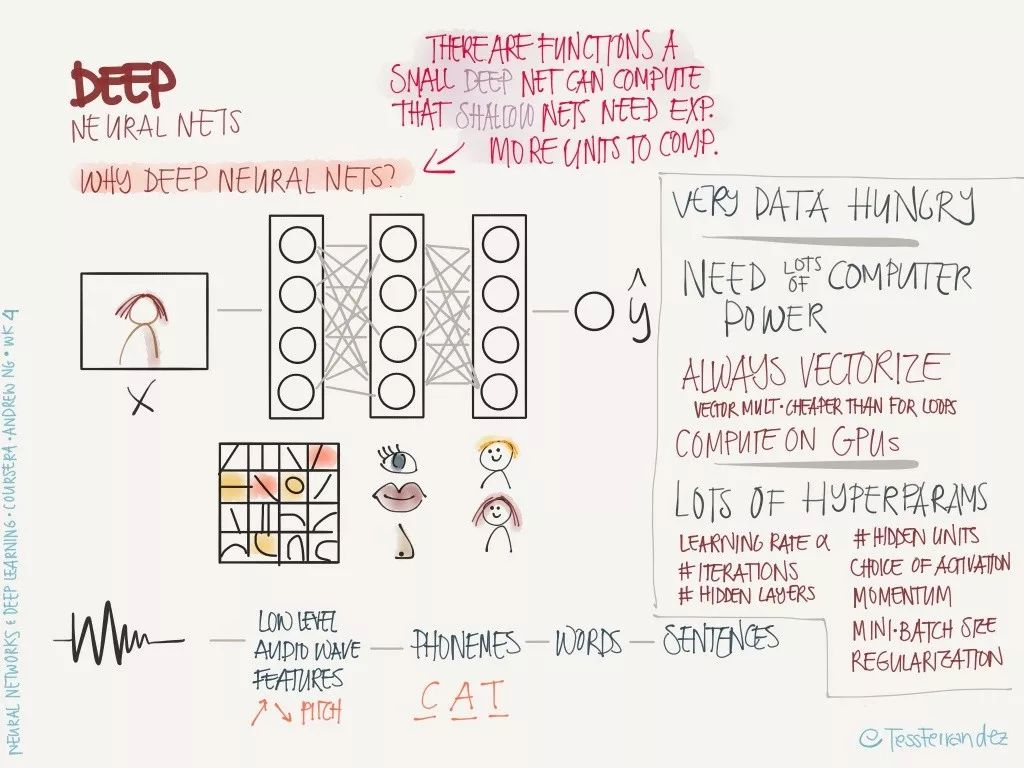 DEEP
NEURAL NETS
WHY DEEP NEURAL NETS?
THERE ARE FUNCTIONS A
SMALL DEEP NET CAN COMPUTE
THAT SHALLOW NETS NEED EXP.
MORE UNITS TO COMP.
X
ŷ
VERY DATA HUNGRY
NEED LOTS OF COMPUTER
POWER
ALWAYS VECTORIZE
VECTOR MULT. CHEAPER THAN FOR LOOPS
COMPUTE ON GPUs
LOTS OF HYPERPARAMS
LEARNING RATE α
# ITERATIONS
# HIDDEN LAYERS
# HIDDEN UNITS
CHOICE OF ACTIVATION
MOMENTUM
MINI-BATCH SIZE
REGULARIZATION
LOW LEVEL
AUDIO WAVE
FEATURES
↗ ↘ PITCH
PHONEMES
C A T
WORDS
SENTENCES
NEURAL NETWORKS & DEEP LEARNING • COURSERA • ANDREW NG • WK 4
@TessFerrandez